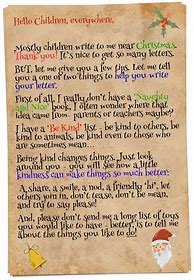 Hello Children, everywhere,
Mostly children write to me near Christmas.
Thank you! It's nice to get so many letters.
BUT, let me give you a few tips. Let me tell
you a one of two things to help you write
your letter.
First of all, I really don't have a 'Naughty
and Nice' book. I often wonder where that
idea came from - parents or teachers maybe?
I have a 'Be Kind' list - be kind to others, be
kind to animals, be kind even to those who
are sometimes mean...
Being kind changes things. Just look
around you - you will see how a little
kindness can make things so much better.
A share, a smile, a nod, a friendly 'hi', let
others join in, don't tease, don't be mean,
and try to say please!
And, please don't send me a long list of toys
you would like to have - better, is to tell me
about the things you like to do!